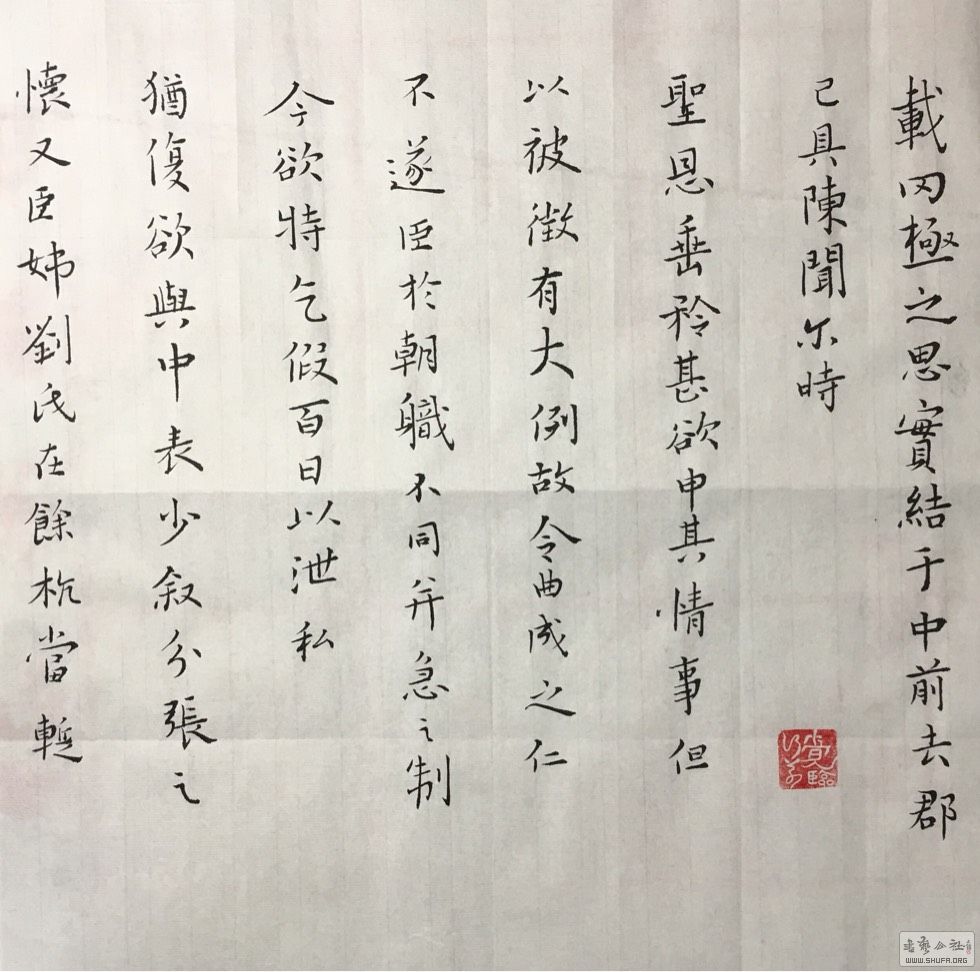 載罔極之思實結于中前去郡
已具陳聞尓時
聖恩垂矜甚欲申其情事但
以被徴有大例故令曲成之仁
不遂臣於朝職不同并急之制
今欲特乞假百日以泄私
猶復欲與中表少叙分張之
懷又臣姊劉氏在餘杭當蹔
書艺公社
WWW.SHUFA.ORG